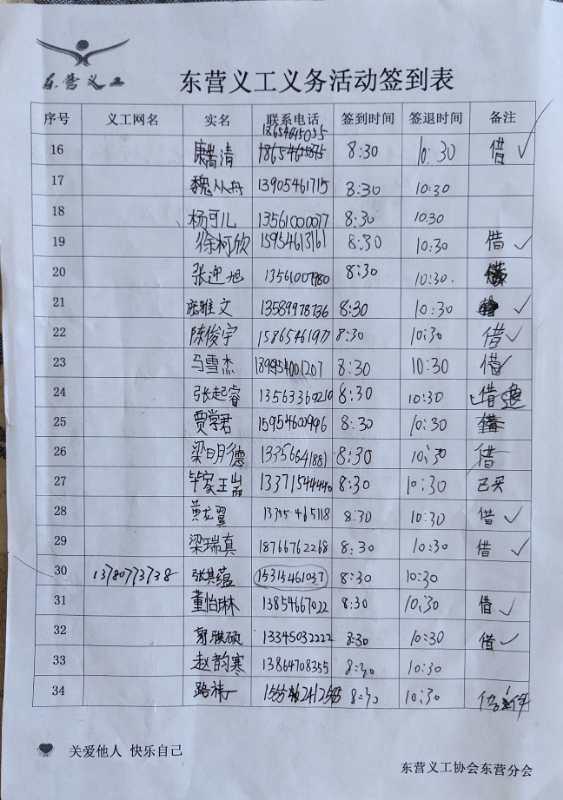 东营义工
东营义工义务活动签到表
序号 义工网名 实名 联系电话 签到时间 签退时间 备注
16 康嵩清 18654645035 8:30 10:30 借 ✓
17 魏从舟 13905461715 8:30 10:30
18 杨可儿 13561000077 8:30 10:30
19 徐柯欣 15954613161 8:30 10:30 借 ✓
20 张迎旭 8:30 10:30
21 张雅文 13589978736 8:30 10:30 ✓
22 陈俊宇 8:30 10:30 借 ✓
23 马雪杰 189954001207 8:30 10:30 借 ✓
24 张起睿 13563369210 8:30 10:30 已借
25 贾学君 15954600496 8:30 10:30
26 梁明德 8:30 10:30 借
27 毕家玉 13371544440 8:30 10:30 已买
28 黄龙翼 8:30 10:30 借 ✓
29 梁瑞真 18766762268 8:30 10:30 借 ✓
30 13780773738 张其蕴 15315461037 8:30 10:30
31 董怡琳 13854667022 8:30 10:30 借 ✓
32 郭骐硕 13345032222 8:30 10:30 借 ✓
33 赵韵寒 13864708355 8:30 10:30
34 路祎 8:30 10:30
关爱他人 快乐自己
东营义工协会东营分会